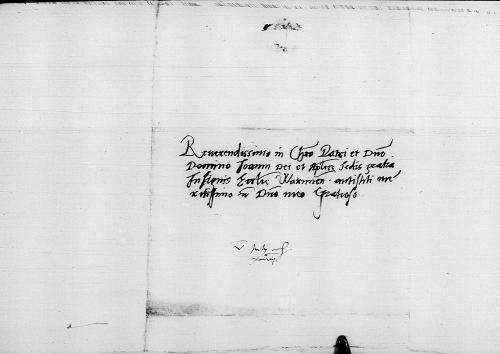 Reverendissimo in Chro Patri et Dno
Domino Joanni Dei et Aplice Sedis gratia
Insignis Eccliae Warmien. antistiti me
ritissimo in Dno meo Gratioso